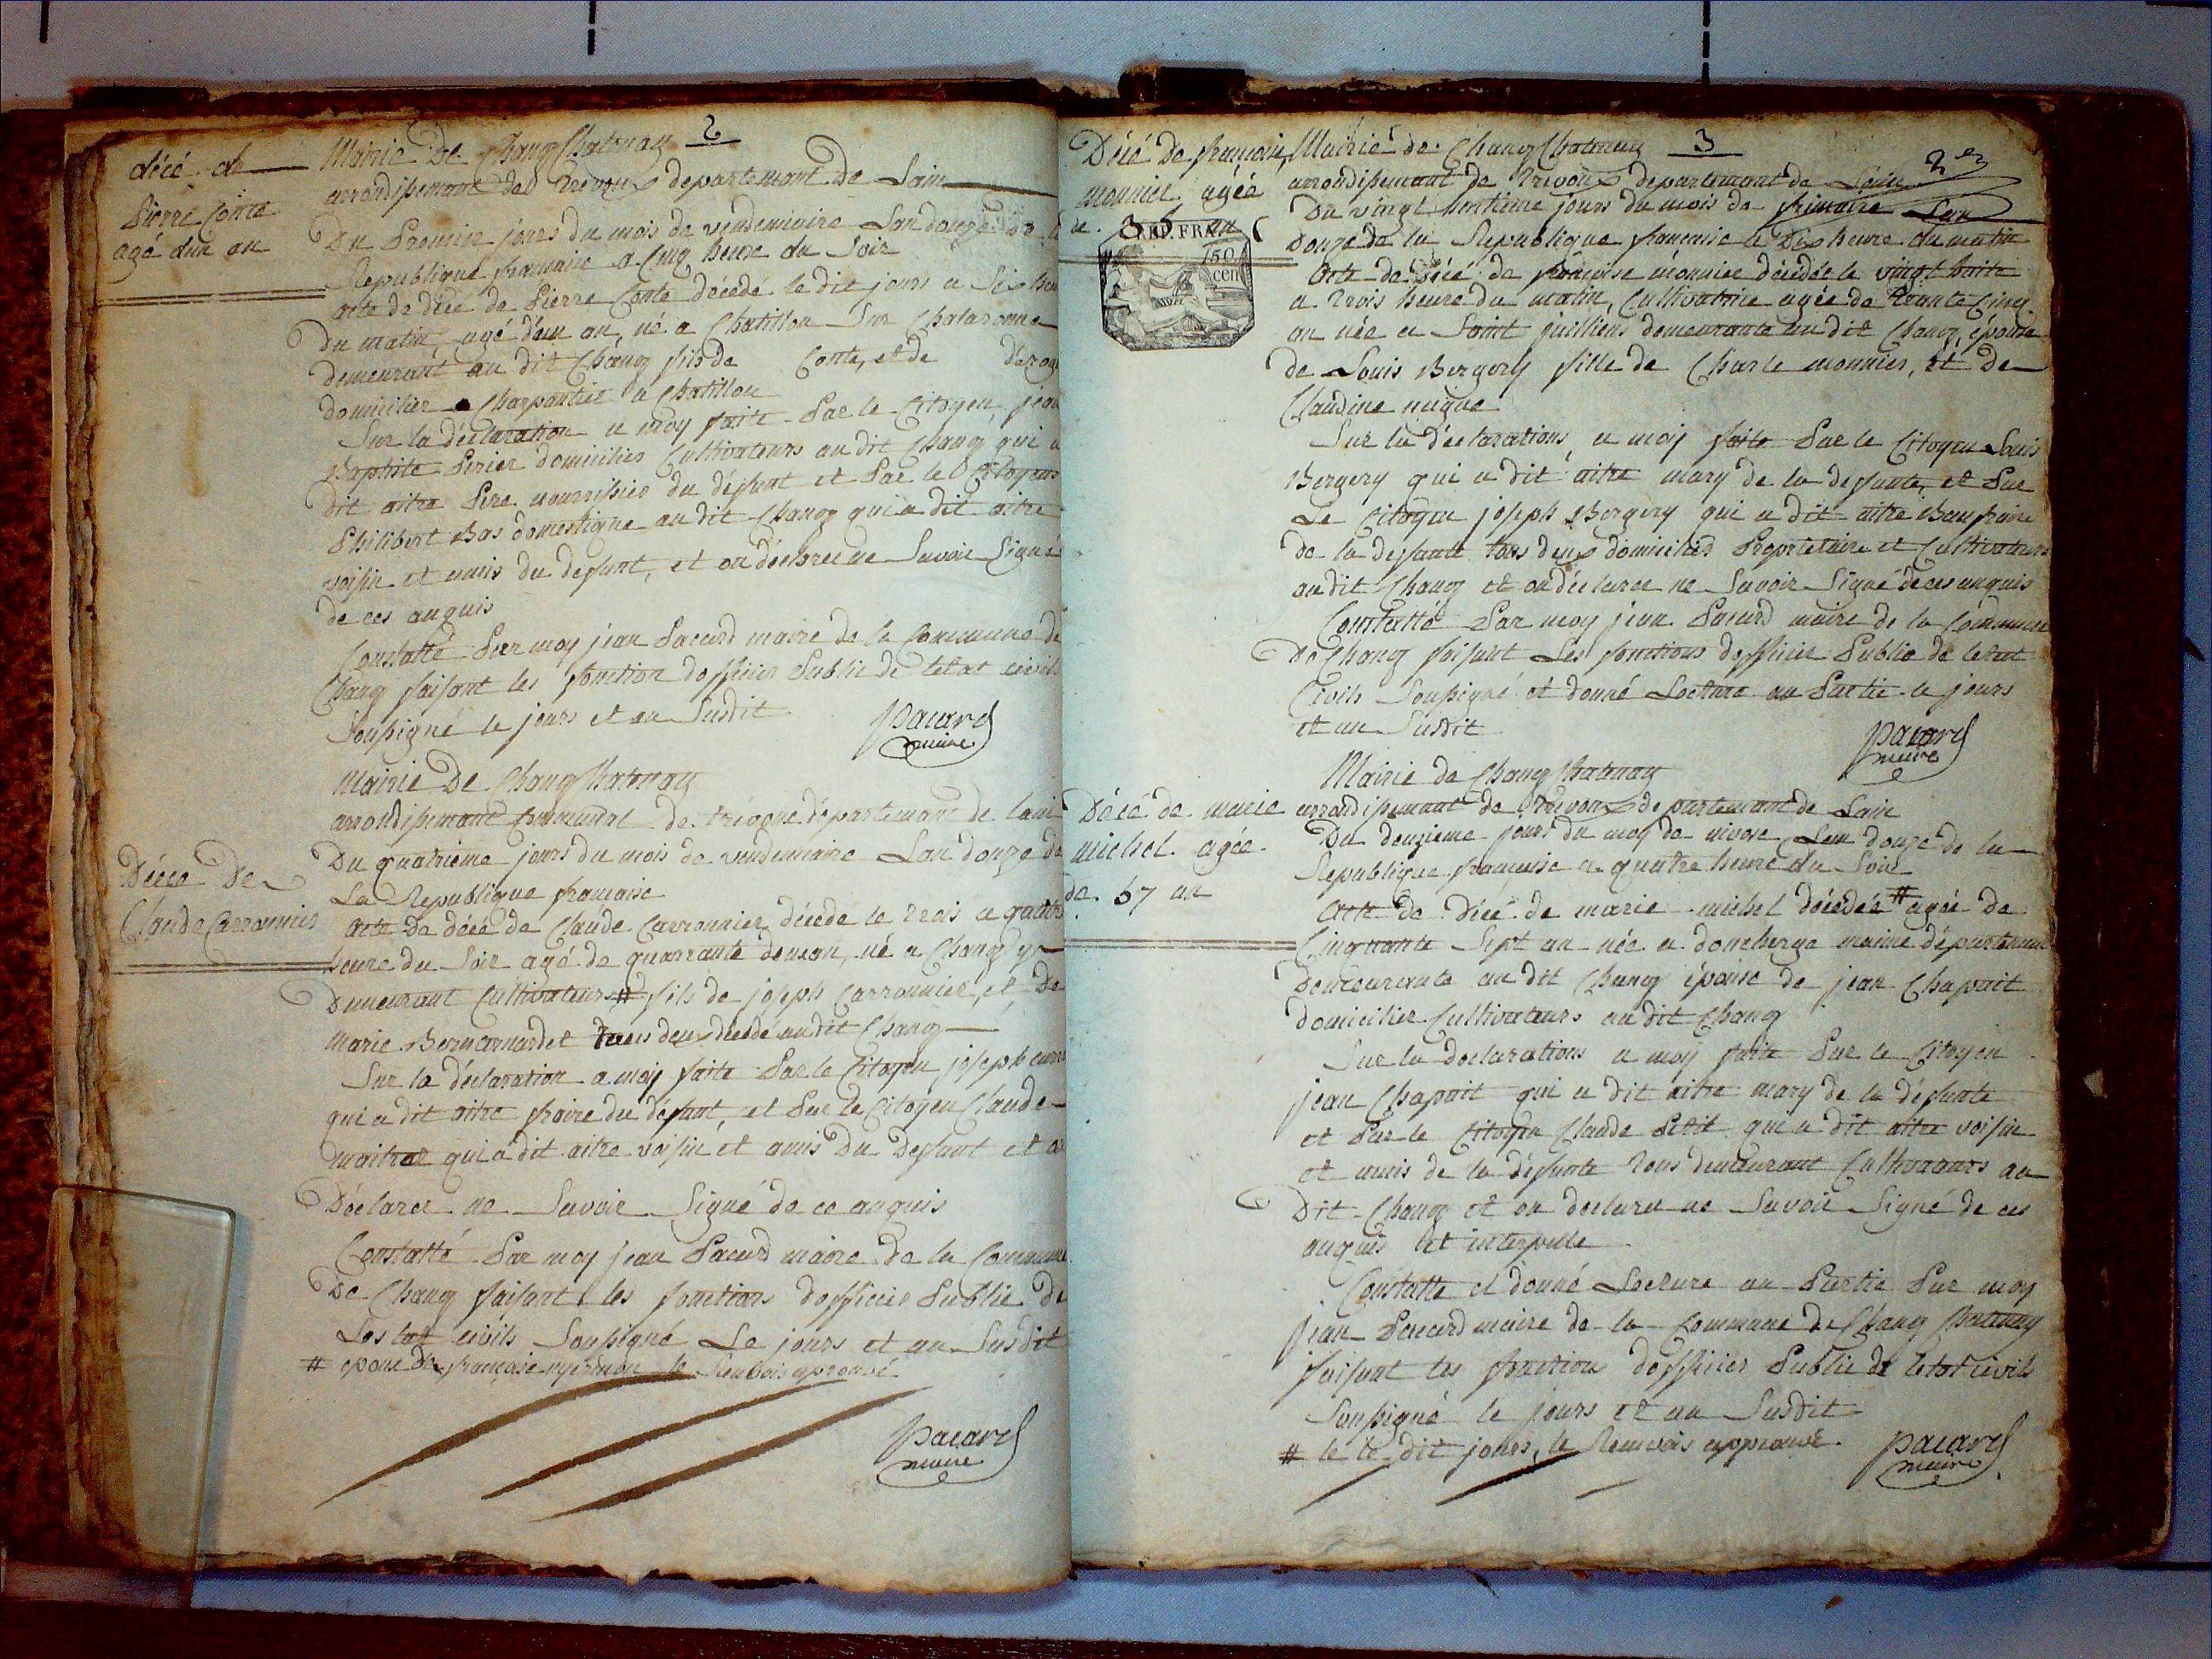 2
décé de
Pierre Conte
agé dun an
Mairie De Chanoz Chatenay
arrondisement de Trevoux departemant De Lain
Du Premier jours du mois de vendemiaire Lan douze De la
Republique francaise a Cinq heure du Soir
acte de décé de Pierre Conte décedé le dit jours a Six heure
Du matin, agé d'un an, né a Chatillon Sur Chalaronne
demeurant au dit Chanoz fils de Conte, et de
domicilier Charpantier a Chatillon
Sur la déclaration a moy faite Par le Citoyen jean
Baptiste Perier domicilier Cultivateurs au dit Chanoz qui a
dit aitre Pere nourrisier du défunt et Par le Citoyens
Philibert Bas domestique au dit Chanoz qui a dit aitre
voisin et amis du defunt, et on déclaree ne Savoir Signé
de ces anquis
Constatté Par moy jean Pacard maire de la Commune de
Chanoz faisant les fonction dofficier Public de letat civils
Sousigné le jours et an Susdit
Pacard
maire
Mairie De Chanoz Chatenay
arrondisemant Communal de trévoux département de lain
Décée De
Claude Carronnier
Du quatrieme jours du mois de vendemiaire Lan douze de
La Republique francaise
acte de décé de Claude Carronnier décedé le trois a quatre
heure du Soir agé de quarrante deux an, né a Chanoz y
Demeurant Cultivateurs # fils de joseph Carronnier, et De
marie Bernarnardet tous deux décedé au dit Chanoz
Sur la déclaration a moy faite Par le Citoyen joseph
qui a dit aitre fraire du défunt, et Par le Citoyen Claude
qui a dit aitre voisin et amis Du Defunt et on
Déclaree ne Savoir Signé de ce anquis
Constatté Par moy jean Pacard maire de la Commune
De Chanoz faisant les fonctions dofficier Public de
Les tat civils Sousigné Le jours et an Susdit
# epoux De francoise le Renvois aprouvé
Pacard
maire
3
2e
Décé De francoise
monnier agée
de 35 an
REP. FRA.
50
cen
Mairie de Chanoz Chatenay
arrondisemant de Trevoux departemant de Lain
Du vingt huitieme jours du mois de frimaire Lan
Douze de la Republique francaise a Dix heure du matin
acte de Décé de francoise monnier décedée le vingt huite
a trois heure du matin, Cultivatrice agée de trante cinq
an née a Saint juilliens demeurante au dit Chanoz, épouse
de Louis Bergery fille de Charle monnier, et de
Claudine
Sur la déclarations a moy faite Par le Citoyen Louis
Bergery qui a dit aitre mary de la defunte, et Par
Le Citoyen joseph Bergery qui a dit aitre Beaufraire
de la defunte tous deux domicilier Proprietaire et Cultivateurs
au dit Chanoz et on déclaree ne Savoir Signé de ces anquis
Constatté Par moy jean Pacard maire de la Commune
De Chanoz faisant Les fonctions dofficier Public de letat
Civils Sousigné et donné Lecture au Partie le jours
et an Susdit
Pacard
maire
Mairie de Chanoz Chatenay
Décé de marie
michel agée
de 57 an
arrondisemant de Trevoux departemant de Lain
Du deuzieme jours du moy de nivose Lan douze de la
Republique francaise a quatre heure du Soir
acte de Décé de marie michel décedée # agée de
Cinquante Sept an née a maime département
Demeurante au dit Chanoz épouse de jean Chapuit
domicilier Cultivateurs au dit Chanoz
Sur la declarations a moy faite Par le Citoyen
jean Chapuit qui a dit aitre mary de la défunte
et Par le Citoyen Claude Petit qui a dit aitre voisin
et amis de la défunte Tous demeurant Cultivateurs au
Dit Chanoz et on declaree ne Savoir Signé de ces
anquis et interpelle
Constatte et donné Lecture au Partie Par moy
jean Pacard maire de la Commune de Chanoz Chatenay
faisant les fonction dofficier Public de letat civils
Sousigné le jours et an Susdit
# le dit jours, le Renvois approuvé.
Pacard
maire